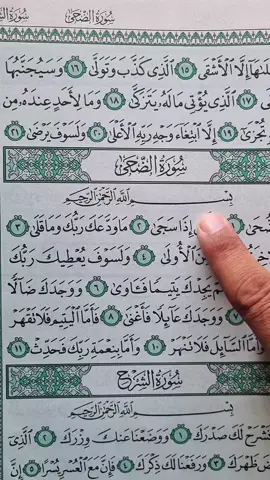 سُورَةُ الضُّحَىٰ
إِلَّا الْأَشْقَى ١٥ الَّذِي كَذَّبَ وَتَوَلَّىٰ ١٦ وَسَيُجَنَّبُهَا
١٧ الَّذِي يُؤْتِي مَالَهُ يَتَزَكَّىٰ ١٨ وَمَا لِأَحَدٍ عِندَهُ مِن
تُجْزَىٰ ١٩ إِلَّا ابْتِغَاءَ وَجْهِ رَبِّهِ الْأَعْلَىٰ ٢٠ وَلَسَوْفَ يَرْضَىٰ ٢١
سُورَةُ الضُّحَىٰ
بِسْمِ اللَّهِ الرَّحْمَٰنِ الرَّحِيمِ
إِذَا سَجَىٰ ٢ مَا وَدَّعَكَ رَبُّكَ وَمَا قَلَىٰ ٣
مِنَ الْأُولَىٰ ٤ وَلَسَوْفَ يُعْطِيكَ رَبُّكَ
يَجِدْكَ يَتِيمًا فَـَٔاوَىٰ ٦ وَوَجَدَكَ ضَالًّا
٧ وَوَجَدَكَ عَائِلًا فَأَغْنَىٰ ٨ فَأَمَّا الْيَتِيمَ فَلَا تَقْهَرْ
وَأَمَّا السَّائِلَ فَلَا تَنْهَرْ ١٠ وَأَمَّا بِنِعْمَةِ رَبِّكَ فَحَدِّثْ ١١
سُورَةُ الشَّرْحِ
بِسْمِ اللَّهِ الرَّحْمَٰنِ الرَّحِيمِ
نَشْرَحْ لَكَ صَدْرَكَ ١ وَوَضَعْنَا عَنكَ وِزْرَكَ ٢ الَّذِي
ظَهْرَكَ ٣ وَرَفَعْنَا لَكَ ذِكْرَكَ ٤ فَإِنَّ مَعَ الْعُسْرِ يُسْرًا ٥ إِنَّ